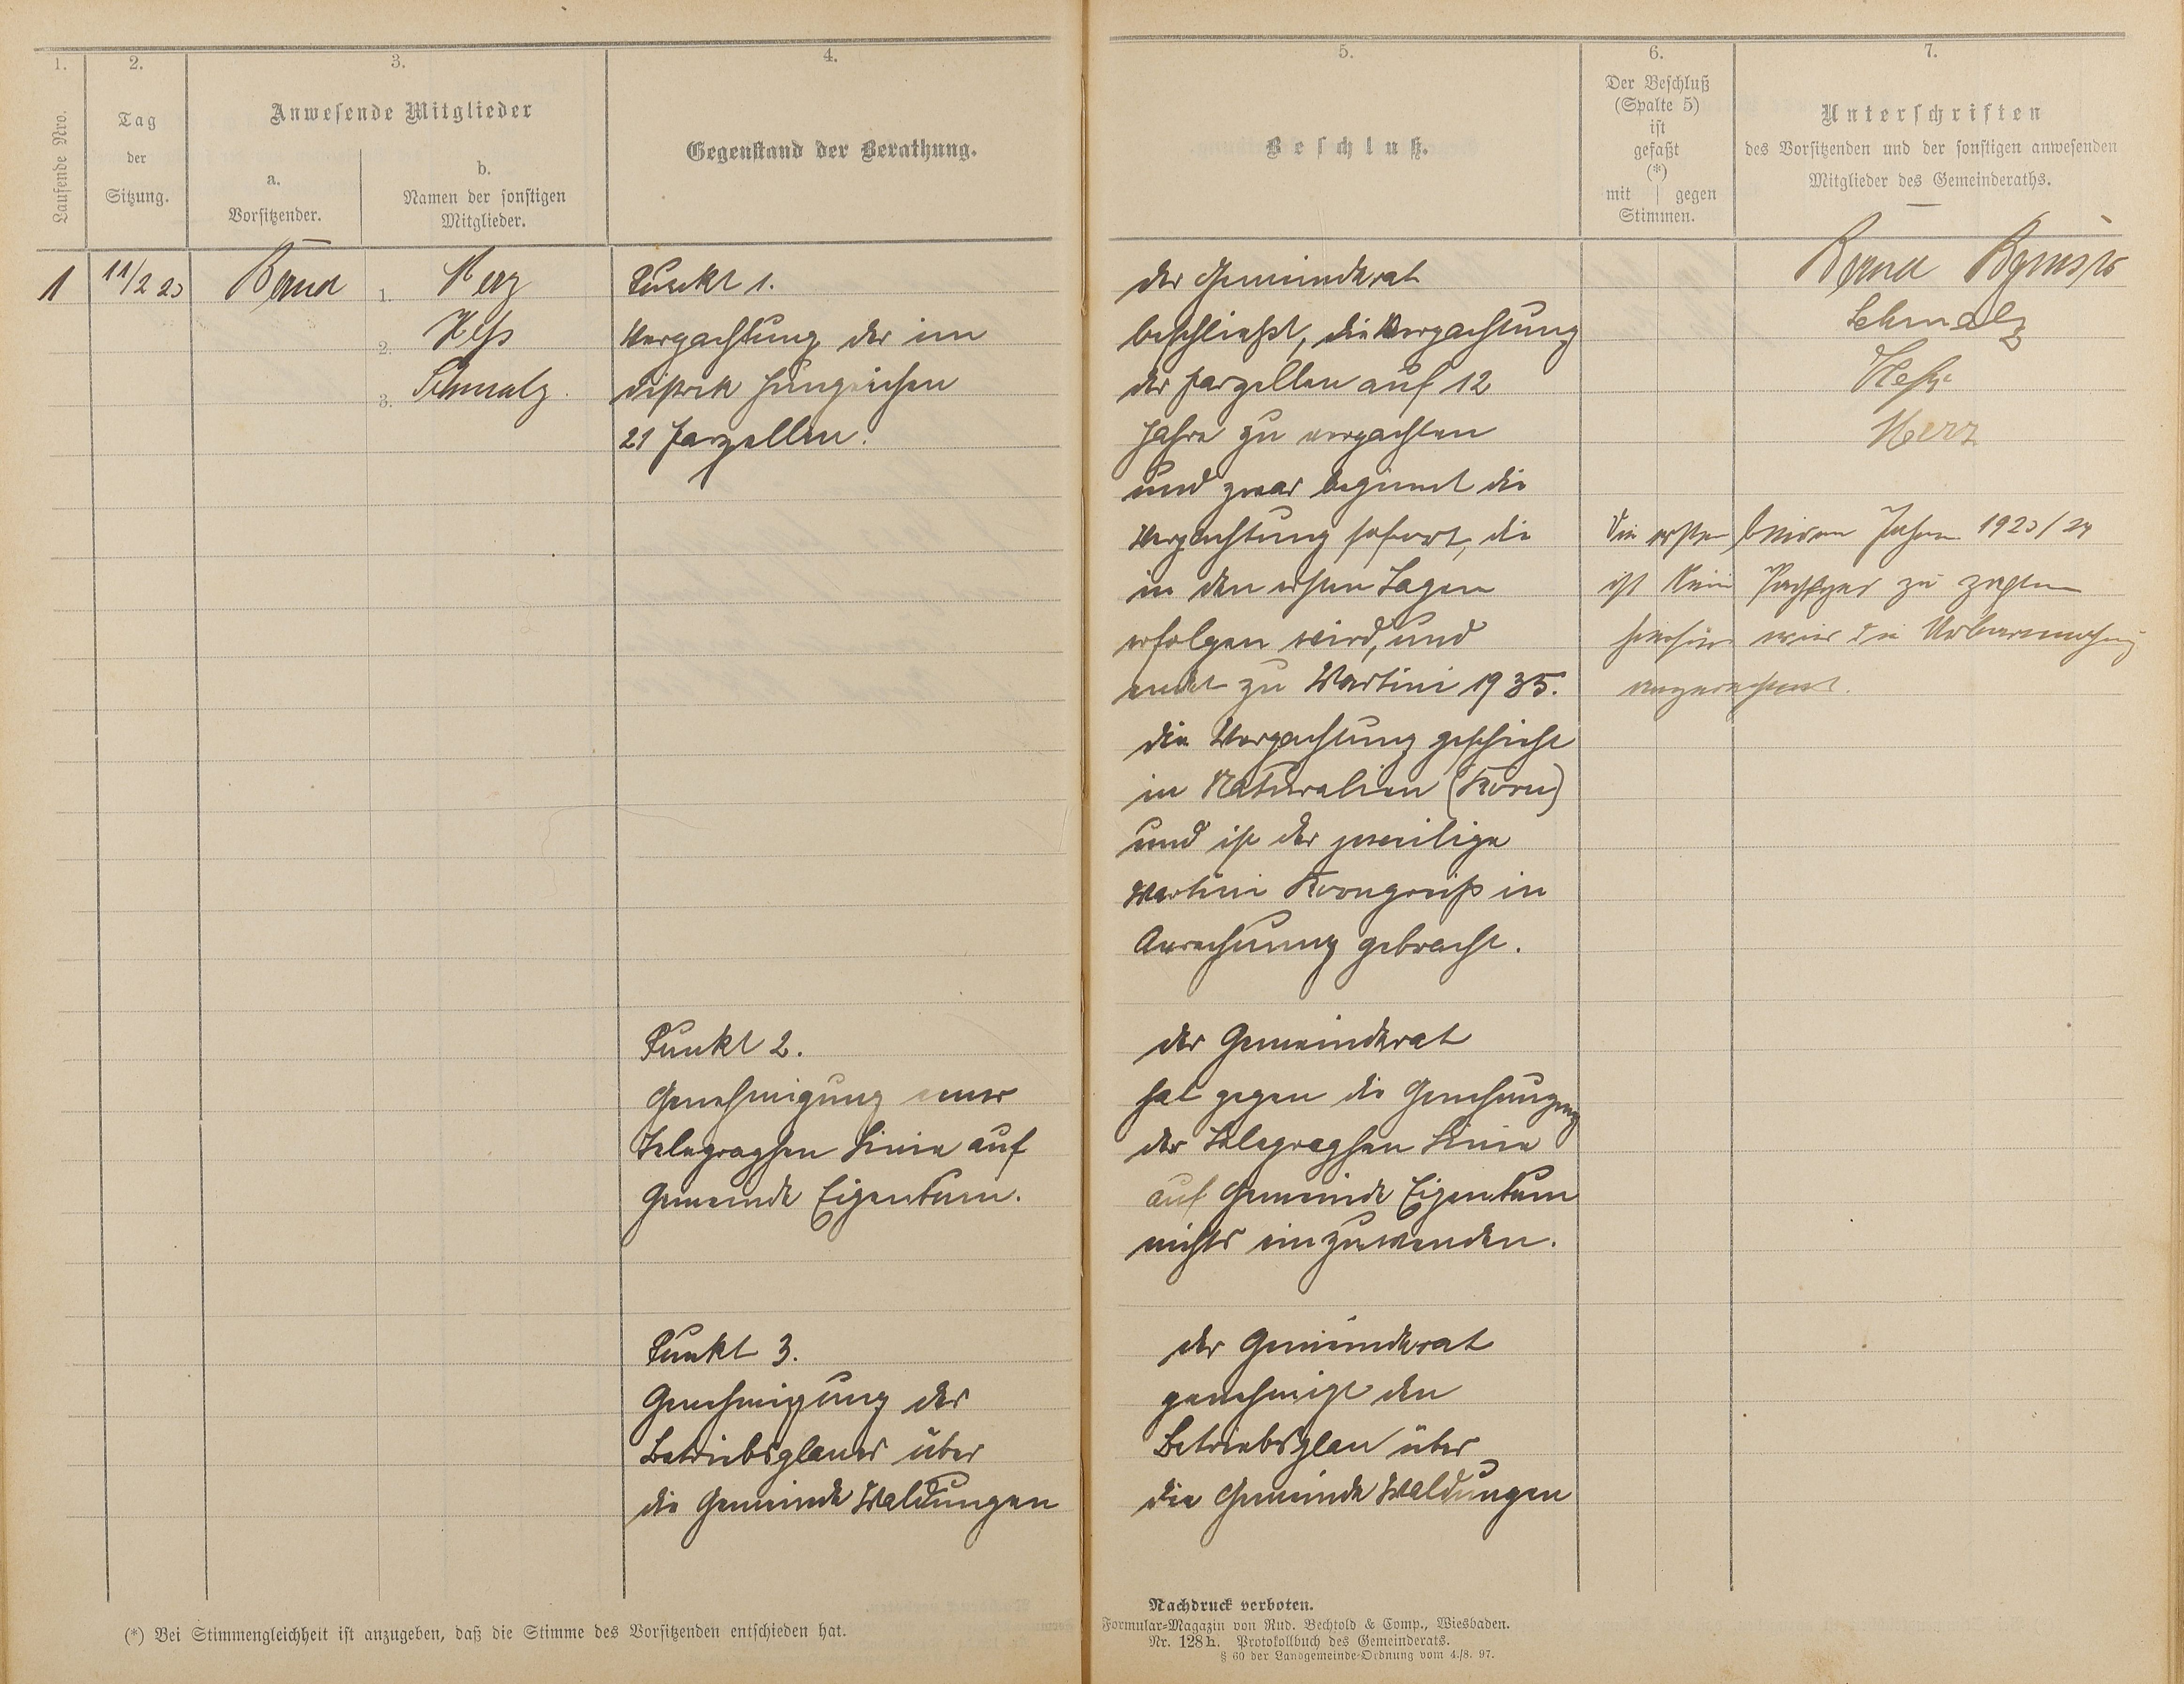 1.
2.
3.
4.
Laufende Nro.
Tag
der
Sitzung.
Anwesende Mitglieder
a.
Vorsitzender.
b.
Namen der sonstigen
Mitglieder.
Gegenstand der Berathung.
1
11/2 23
1. Merz
2. Heß
3. Schmalz.
Punkt 1.
Verpachtung der im
Distrik
21 Parzellen.
Punkt 2.
Genehmigung einer
Telegraphen Linie auf
Gemeinde Eigentum.
Punkt 3.
Genehmigung des
Betriebsplanes über
die Gemeinde Waldungen
(*) Bei Stimmengleichheit ist anzugeben, daß die Stimme des Vorsitzenden entschieden hat.
5.
6.
7.
Beschluß.
Der Beschluß
(Spalte 5)
ist
gefaßt
(*)
mit gegen
Stimmen.
Unterschriften
des Vorsitzenden und der sonstigen anwesenden
Mitglieder des Gemeinderaths.
der Gemeinderat
beschließt, die Verpachtung
der Parzellen auf 12
Jahre zu verpachten
und zwar beginnt die
Verpachtung sofort, die
in den ersten Tagen
erfolgen wird, und
endet zu Martini 1935.
die Verpachtung geschieht
in Naturalien (Korn)
und ist der jeweilige
Martini Kornpreiß in
Anrechnung gebracht.
der Gemeinderat
hat gegen die
der Telegraphen Linie
auf Gemeinde Eigentum
nichts einzuwenden.
der Gemeinderat
genehmigt den
Betriebsplan über
die Gemeinde Waldungen
Schmalz
Heß
Merz
Die ersten beiden Jahre 1923/24
ist kein zu zahlen
hierfür wird die Urbarmachung
angerechnet.
Nachdruck verboten.
Formular-Magazin von Rud. Bechtold & Comp., Wiesbaden.
Nr. 128 h. Protokollbuch des Gemeinderats.
§ 60 der Landgemeinde-Ordnung vom 4./8. 97.